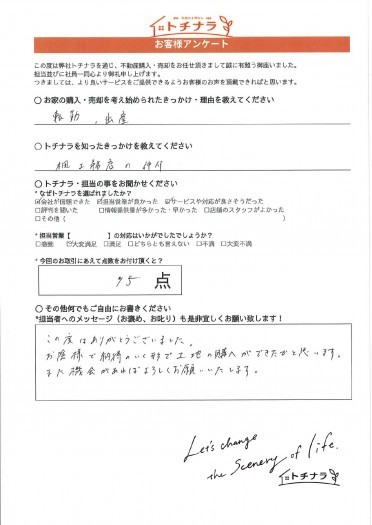 トチナラ
お客様アンケート
この度は弊社トチナラを通じ、不動産購入・売却をお任せ頂きまして誠に有難う御座いました。
担当並びに社員一同心より御礼申し上げます。
つきましては、より良いサービスをご提供できるようお客様のお声を頂戴できればと思います。
○ お家の購入・売却を考え始められたきっかけ・理由を教えてください
転勤、出産
○ トチナラを知ったきっかけを教えてください
工務店の紹介
○ トチナラ・担当の事をお聞かせください
* なぜトチナラを選ばれましたか?
☑会社が信頼できた ☑担当営業が良かった ☑サービスや対応が良さそうだった
□評判を聞いた □情報提供量が多かった・早かった □店舗のスタッフがよかった
□その他 ( )
* 担当営業【 】の対応はいかがでしたでしょうか?
□感動 ☑大変満足 □満足 □どちらとも言えない □不満 □大変不満
* 今回のお取引にあえて点数をお付け頂くと?
95 点
○ その他何でもご自由にお書きください
*担当者へのメッセージ(お褒め、お叱り)も是非宜しくお願い致します!
この度はありがとうございました。
お陰様で納得のいく形で土地の購入ができたかと思います。
また機会があればよろしくお願いいたします。
Let's change
the Scenery of life.
トチナラ